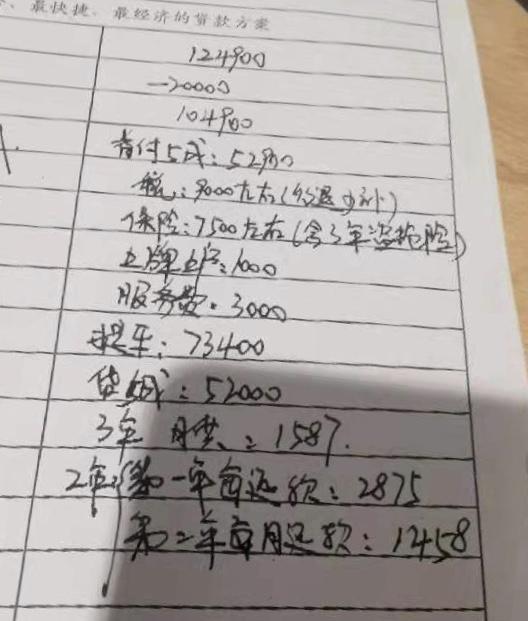 、最快捷、最经济的贷款方案
124900
-20000
104900
首付5成:52900
税:9000左右(多退少补)
保险:7500左右(含3年盗抢险)
上牌上户:1000
服务费:3000
提车:73400
贷款:52000
3年 月供:1587.
2年:第一年每月还款:2875
第二年每月还款:1458